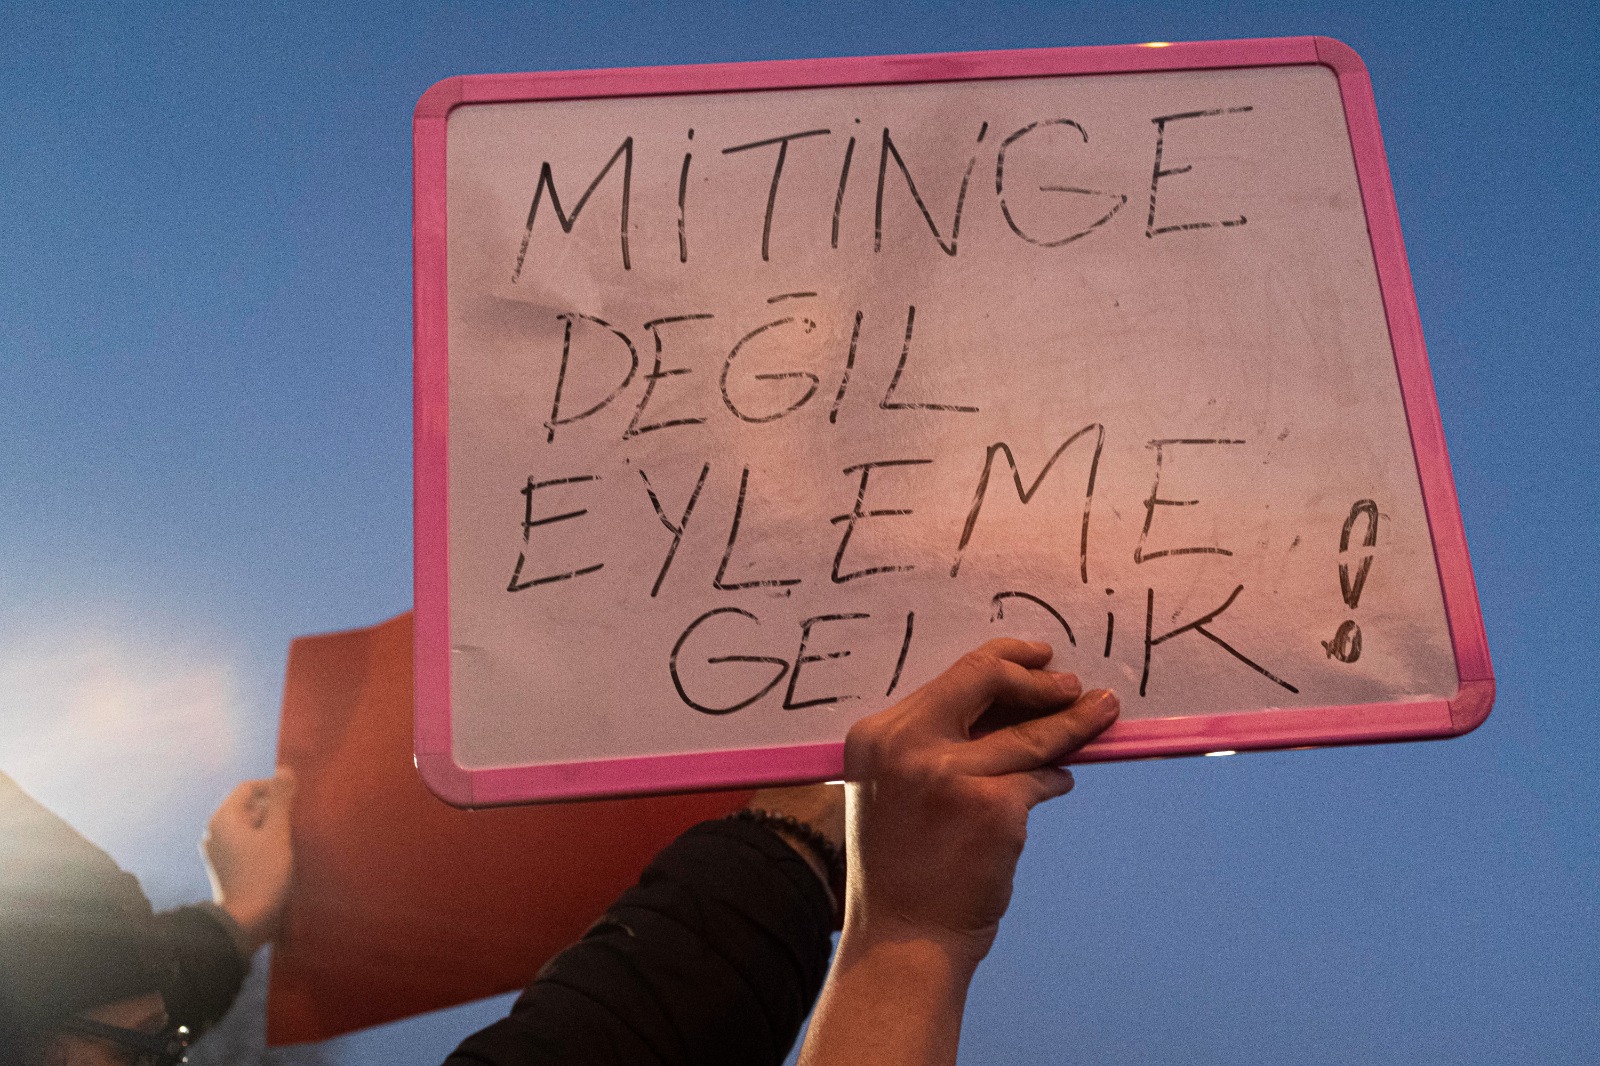 MİTİNGE
DEĞIL
EYLEME
GELDİK!